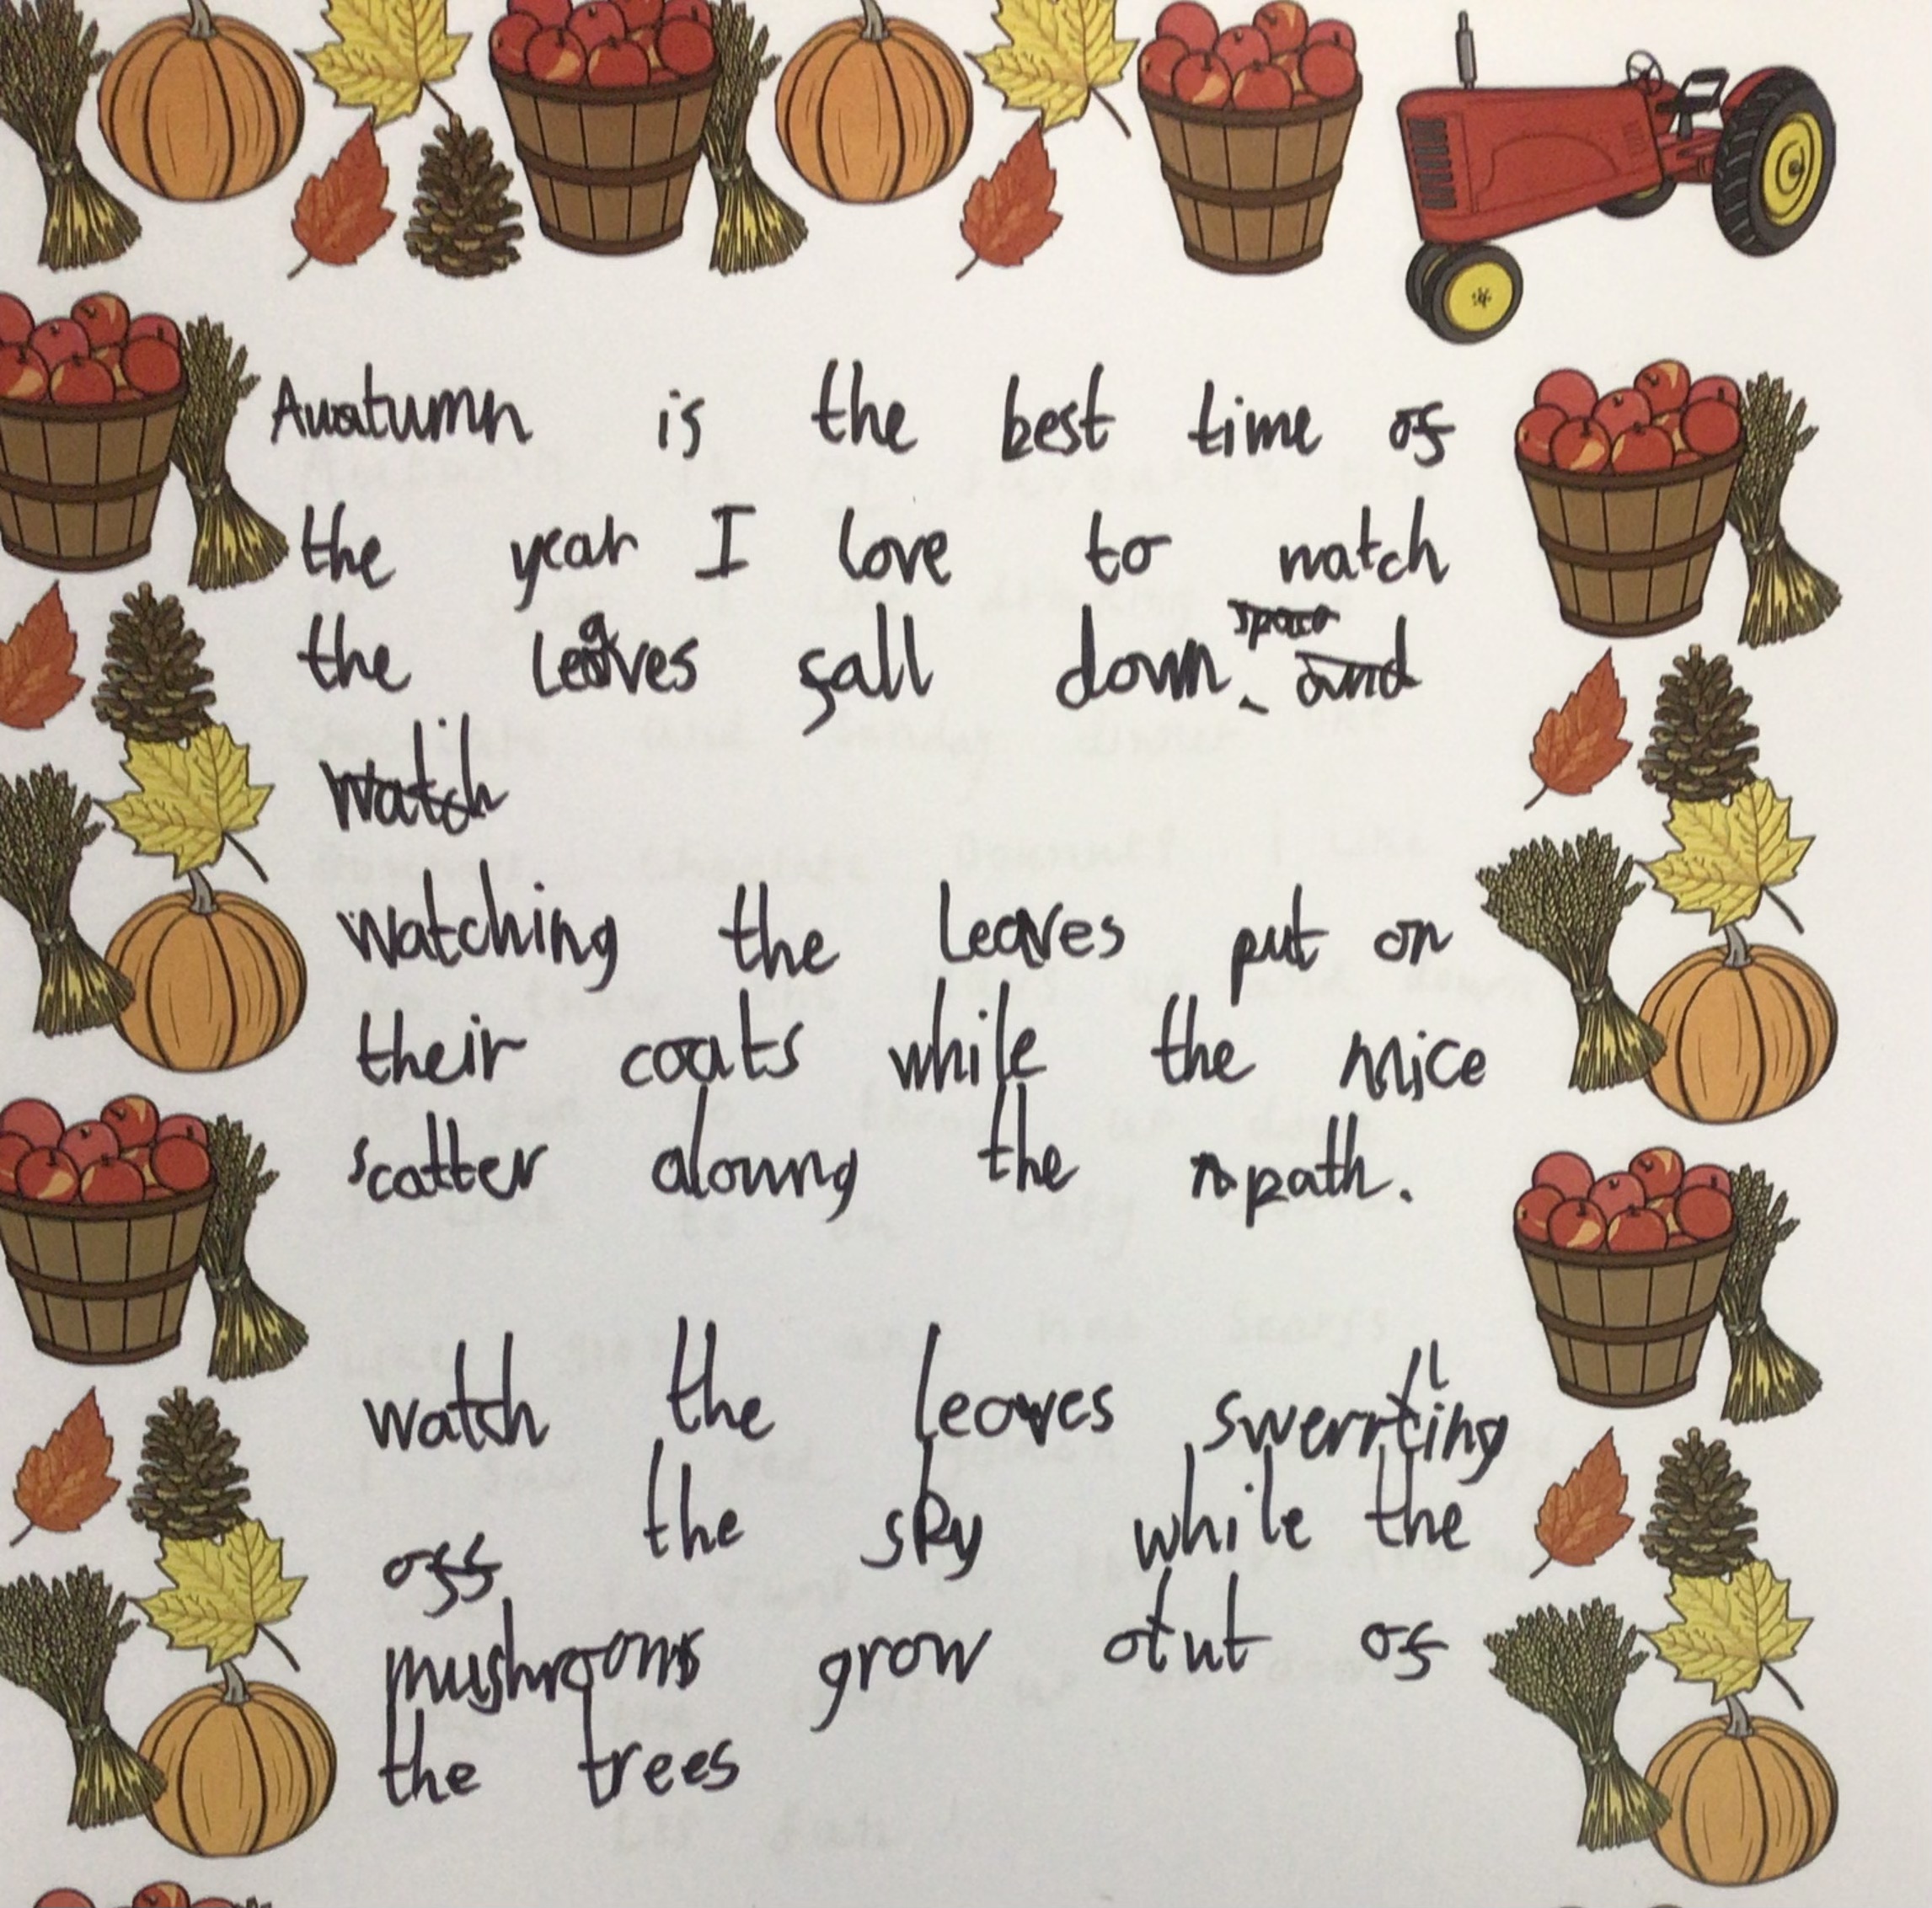 Auatumn is the best time of
the year I love to watch
the leaves fall down. and
watch
watching the leaves put on
their coats while the mice
scatter aloung the path.
watch the leaves swerrling
off the sky while the
mushrooms grow otut of
the trees